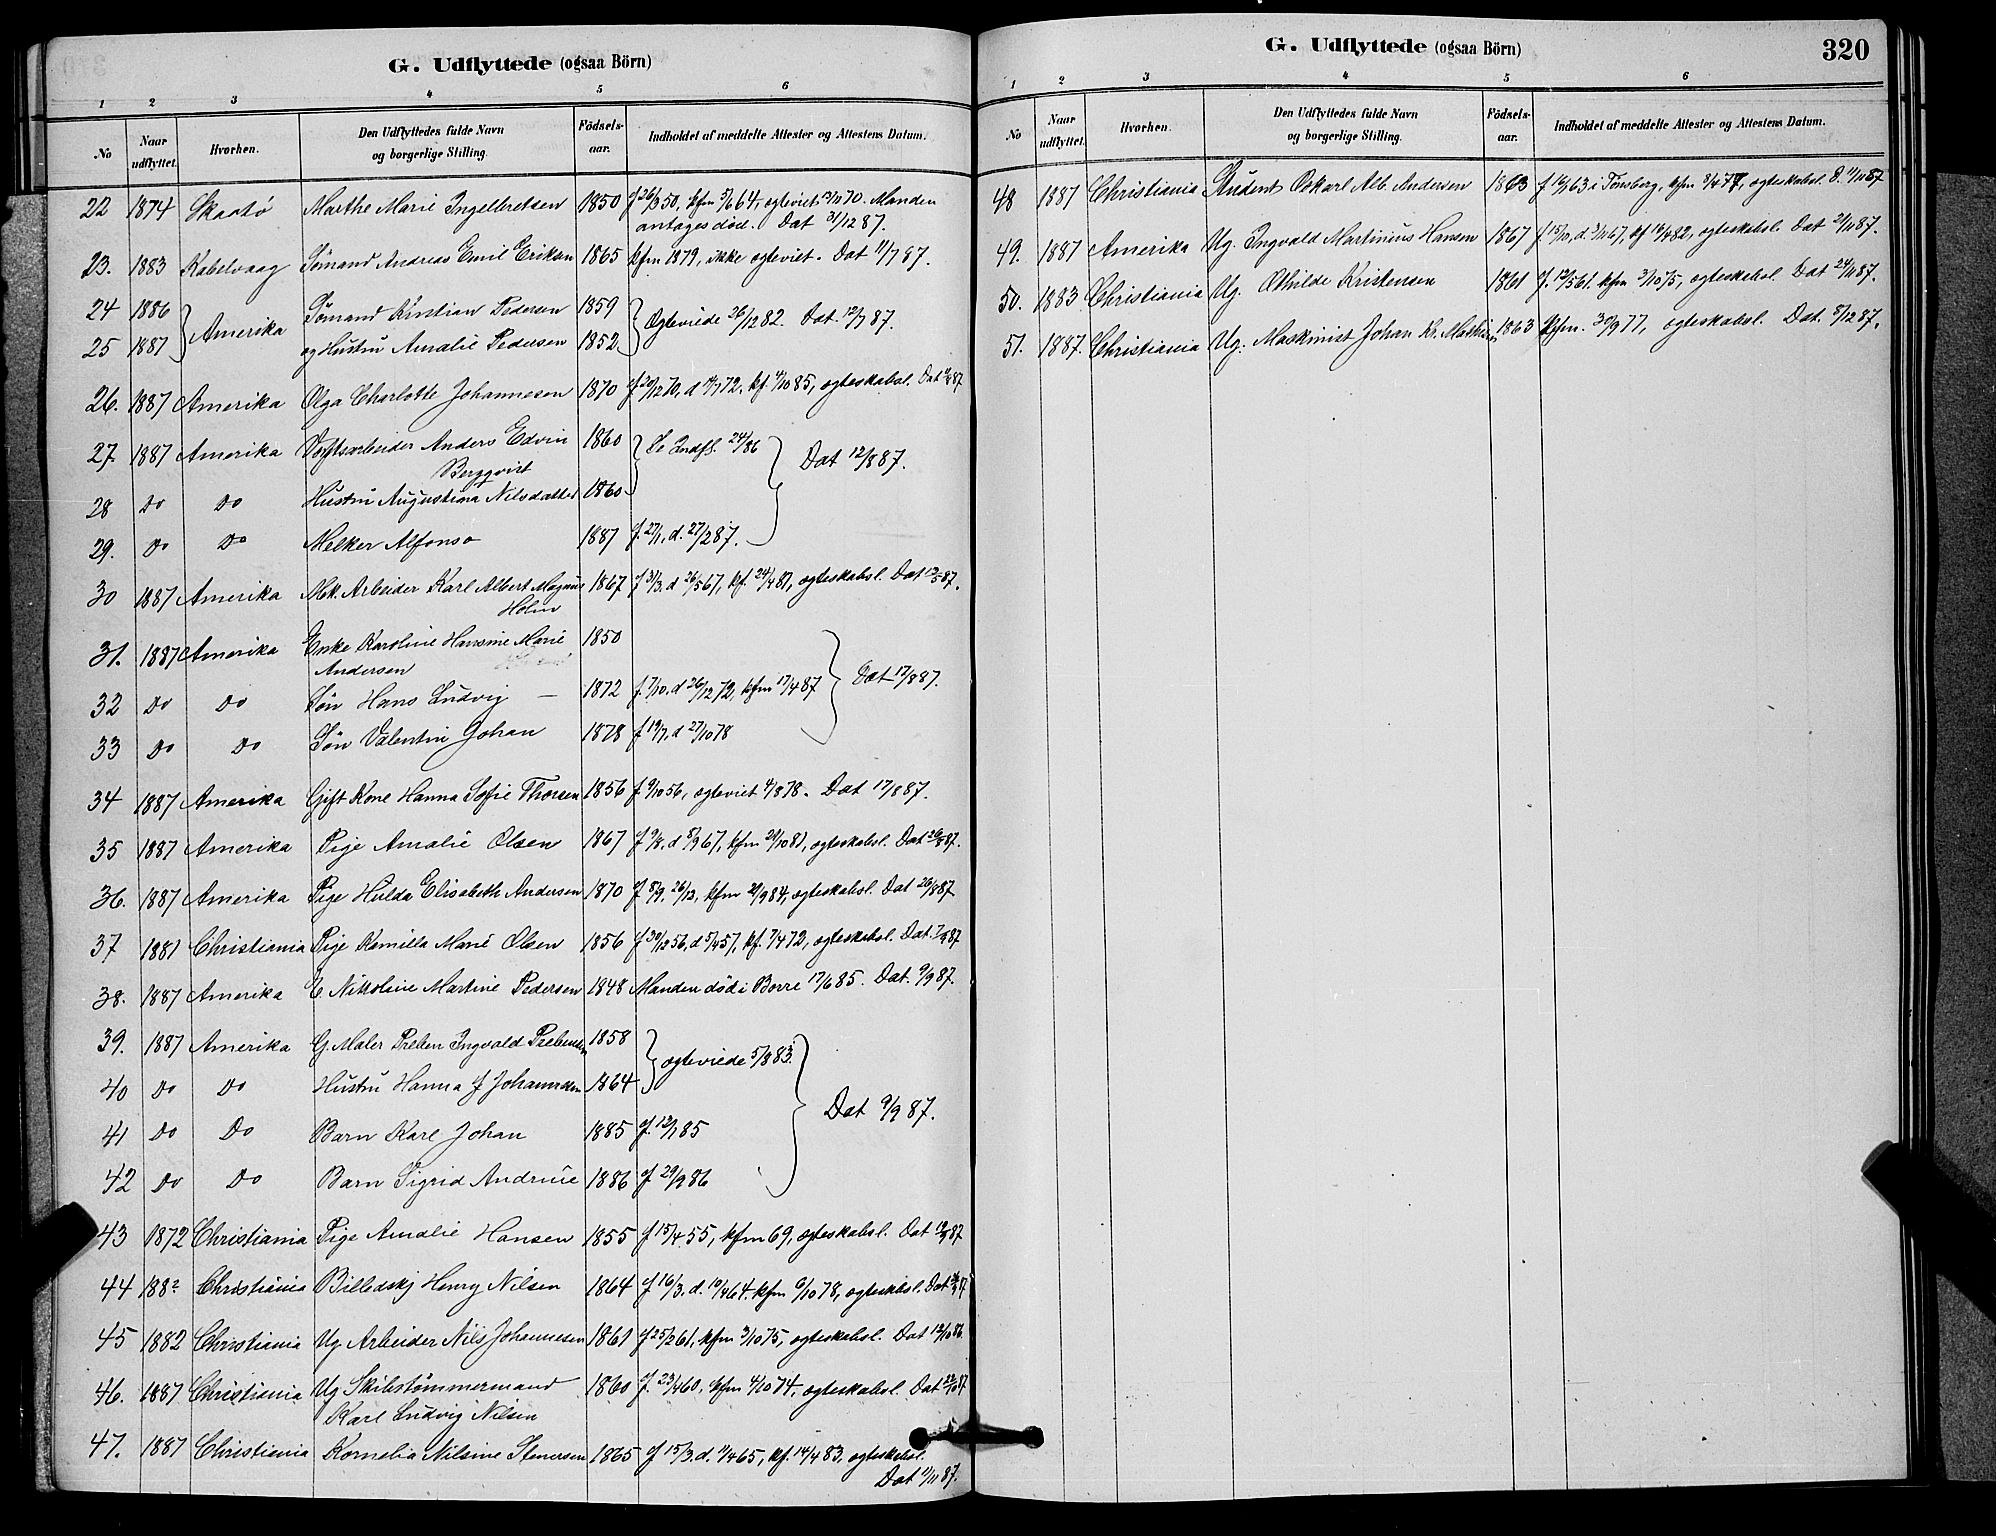 G. Udflyttede (ogsaa Börn)
1 2 3 4 5 6
No Naar udflyttet. Hvorhen. Den Udflyttedes fulde Navn og borgerlige Stilling. Födsels-aar. Indholdet af meddelte Attester og Attestens Datum.
22 1874 Skaatø Marthe Marie Ingelbretsen 1850 f 26/3 50, kfm 5/6 64, egteviet 70. Manden
antages død. Dat 31/12 87.
23. 1883 Kabelvaag Sømand Andreas Emil Eriksen 1865 kfm 1879, ikke egteviet. Dat 11/7 87.
24 1886 Amerika Sømand Kristian Pedersen 1859 Egteviede 26/12 82. Dat. 12/7 87.
25 1887 og Hustru Amalie Pedersen 1852
26. 1887 Amerika Olga Charlotte Johannesen 1870 f 20/12 70, d 72, kf. 4/10 85, egteskabsl. Dat 87
27 1887 Amerika Værftsarbeider Anders Edvin 1860 Se Indfl. 24/86 Dat 12/8 87.
Bergqvist
28 Do Do Hustru Augustina Nilsdatter 1860
29. Do Do Melker Alfonso 1887 f. 27/1, d. 27/2 87.
30 1887 Amerika Mek. Arbeider Karl Albert Magnus 1867 f 31/3. d 26/5 67, kf. 24/4 81, egteskabsl. Dat 87.
Holm
31. 1887 Amerika Enke Karoline Hansine Marie 1850
Andersen
32 Do Do Søn Hans Ludvig — 1872 f. 7/10. d 26/12 72, kfm 17/4 87 Dat 17/8 87.
33 Do Do Søn Valentin Johan 1878 f 19/7, d 27/10 78
34 1887 Amerika Gift Kone Hanna Sofie Thorsen 1856 f 9/10 56, egteviet 4/8 78. Dat 17/8 87.
35 1887 Amerika Pige Amalie Olsen 1867 f 9/8, d 8/9 67, kfm 81, egteskabsl. Dat 26/8 87.
36. 1887 Amerika Pige Hulda Elisabeth Andersen 1870 f 8/9, 26/12, kfm 84, egteskabsl. Dat 26/8 87
37 1881 Christiania Pige Kamilla Marie Olsen 1856 f 30/12 56, d 5/4 57, kf. 7/4 72, egteskabsl. Dat. 87
38. 1887 Amerika E. Nikoline Martine Pedersen 1848 Manden død i Borre 17/6 85. Dat. 9/9 87.
39. 1887 Amerika G. Maler Preben Ingvald Prebensen 1858 egteviede 5/8 83.
40 Do Do Hustru Hanna J Johannesen 1864
41 Do Do Barn Karl Johan 1885 f. 12/1 85 Dat 9/9 87.
42 Do Do Barn Sigrid Andrine 1886 f 29/9 86
43 1872 Christiania Pige Amalie Hansen 1855 f 15/4 55, kfm 69, egteskabsl. Dat 87
44 188? Christiania Billedskj Henry Nilsen 1864 f 16/3. d. 10/4 64. kfm 6/10 78, egteskabsl. Dat
45 1882 Christiania Ug Arbeider Nils Johannesen 1861 f 25/2 61, kfm 3/10 75, egteskabsl. Dat 12/10 86.
46. 1887 Christiania Ug Skibstømmermand 1860 f. 23/4 60, kfm 4/10 74, egteskabsl. Dat 87
Karl Ludvig Nilsen
47. 1887 Christiania Kornelia Nilsine Stenersen 1865 f 15/3. d. 65, kf. 14/4 83, egteskabsl.
Dat 87.
G. Udflyttede (ogsaa Börn) 320
1 2 3 4 5 6
No Naar udflyttet. Hvorhen. Den Udflyttedes fulde Navn og borgerlige Stilling. Födsels-aar. Indholdet af meddelte Attester og Attestens Datum.
48 1887 Christiania Student Oskarl Alb. Andersen 1863 f 63 i Tønsberg, kfm 8/4 77, egteskabsl. D. 87
49. 1887 Amerika Ug. Ingvald Martinius Hansen 1867 f 15/10, d. 3/11 67, kf 16/4 82, egteskabsl. Dat 87.
50. 1883 Christiania Ug. Othilde Kristensen 1861 f. 12/5 61. kfm 3/10 75, egteskabsl. Dat 24/11 87.
51. 1887. Christiania Ug. Maskinist Johan Kr. 1863 Kfm. 30/9 77, egteskabsl. Dat. 5/12 87.